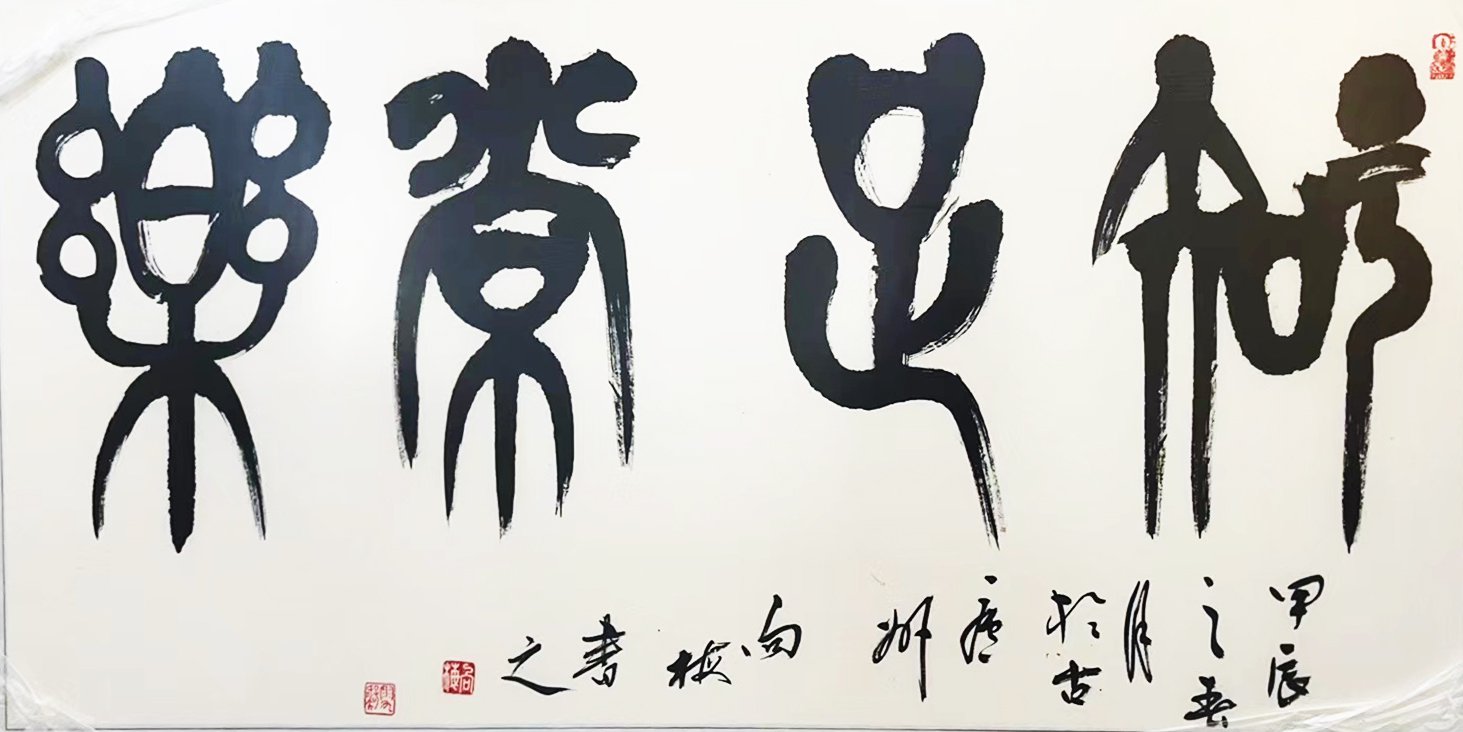 知足常樂
甲辰
之春
月
於古
州
向
梅
書
之